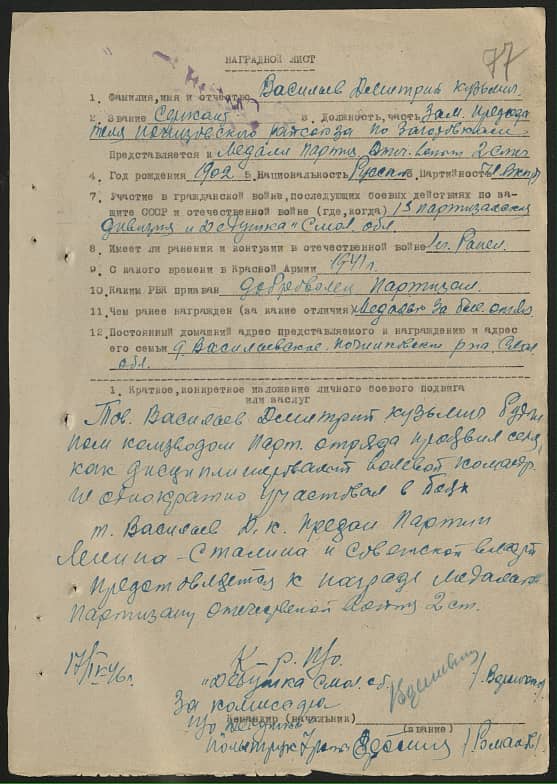 77
НАГРАДНОЙ ЛИСТ
1. Фамилия, имя и отчество Василаев Деметрий Кузьмич
2. Звание Сержант 3. Должность, часть Зам. председа
теля Починковского по заготовкам
Представляется к Медали Партиз. Отеч. войны 2 степ
4. Год рождения 1902 5. Национальность Русский 6. Партийность
7. Участие в гражданской войне, последующих боевых действиях по за-
щите СССР и отечественной войне (где, когда) 13 партизанская
дивизия и "Дедушка" Смол. обл.
8. Имеет ли ранения и контузии в отечественной войне Ранен.
9. С какого времени в Красной Армии 1941 г.
10. Каким РВК призван доброволец Партизан.
11. Чем ранее награжден (за какие отличия) Медалью за бое.
12. Постоянный домашний адрес представляемого к награждению и адрес
его семьи д. Василаевское. Починковский р-на, Смол
обл.
1. Краткое, конкретное изложение личного боевого подвига
или заслуг
Тов. Василаев Деметрий Кузьмич будучи
ком. взводом Парт. отряда проявил себя,
как дисциплинированный волевой командир.
Не однократно участвовал в боях
т. Василаев Д. К. предан Партии
Ленина - Сталина и Советской власти
Представляется к награде медалью
Партизану отечественной войны 2 ст.
17/IV 46 г.
К-р. п/о.
"Дедушка" Смол. об.
За комиссара
п/о "Дедушка"
Командир (начальник)
(звание)